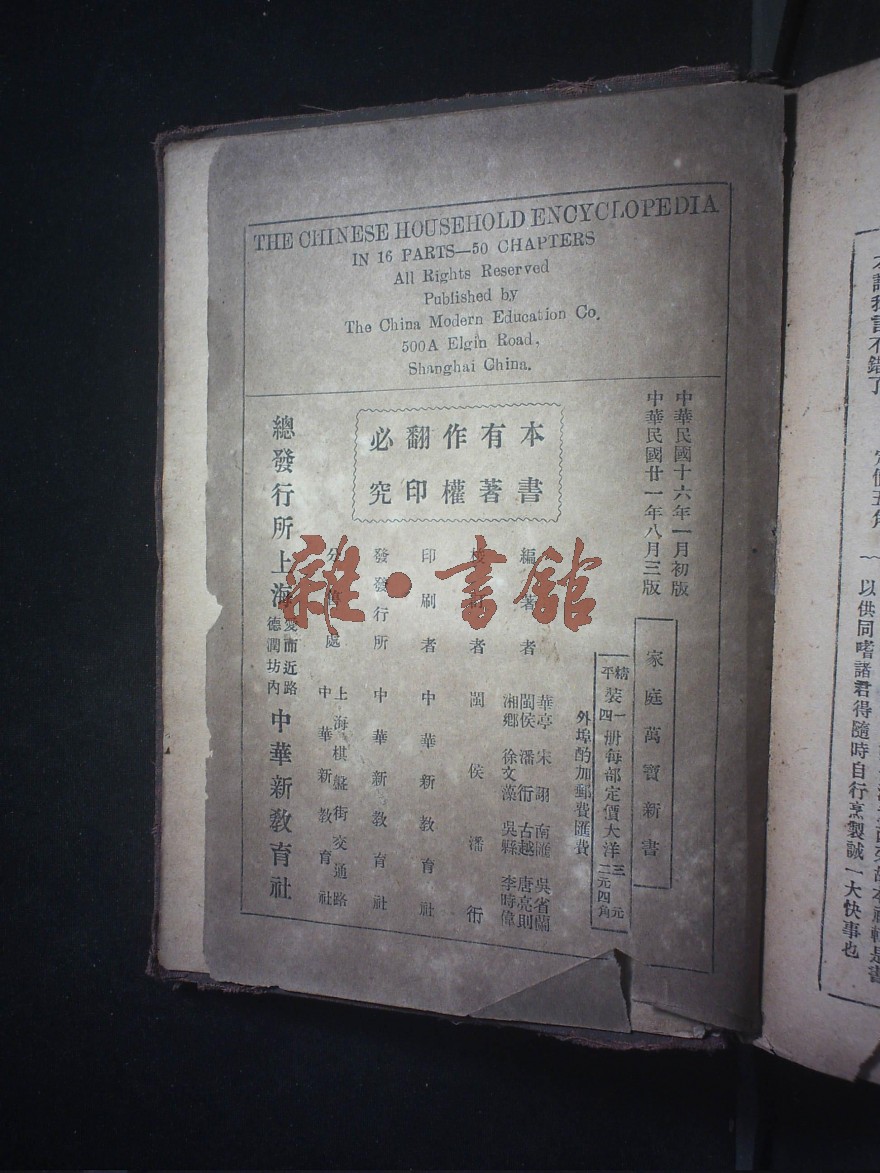 THE CHINESE HOUSEHOLD ENCYCLOPEDIA
IN 16 PARTS—50 CHAPTERS
All Rights Reserved
Published by
The China Modern Education Co.
500A Elgin Road,
Shanghai China.
本書有著作權翻印必究
中華民國十六年一月初版
中華民國廿一年八月三版
家庭萬寶新書
精裝一册每部定價大洋三元
平裝四册每部定價大洋二元四角
外埠酌加郵費匯費
編著者
華亭 宋詡 南匯 吳省蘭
閩侯 潘衍 古越 唐亮則
湘鄉 徐文藻 吳縣 李時偉
者 閩侯潘衍
印刷者 中華新教育社
發發行所 中華新教育社
分 處 上海棋盤街交通路
中華新教育社
總發行所上海愛而近路
德潤坊內
中華新教育社
雜·書館
本
不錯了
定價五角
以供同嗜諸君得隨時自行烹製誠一大快事也